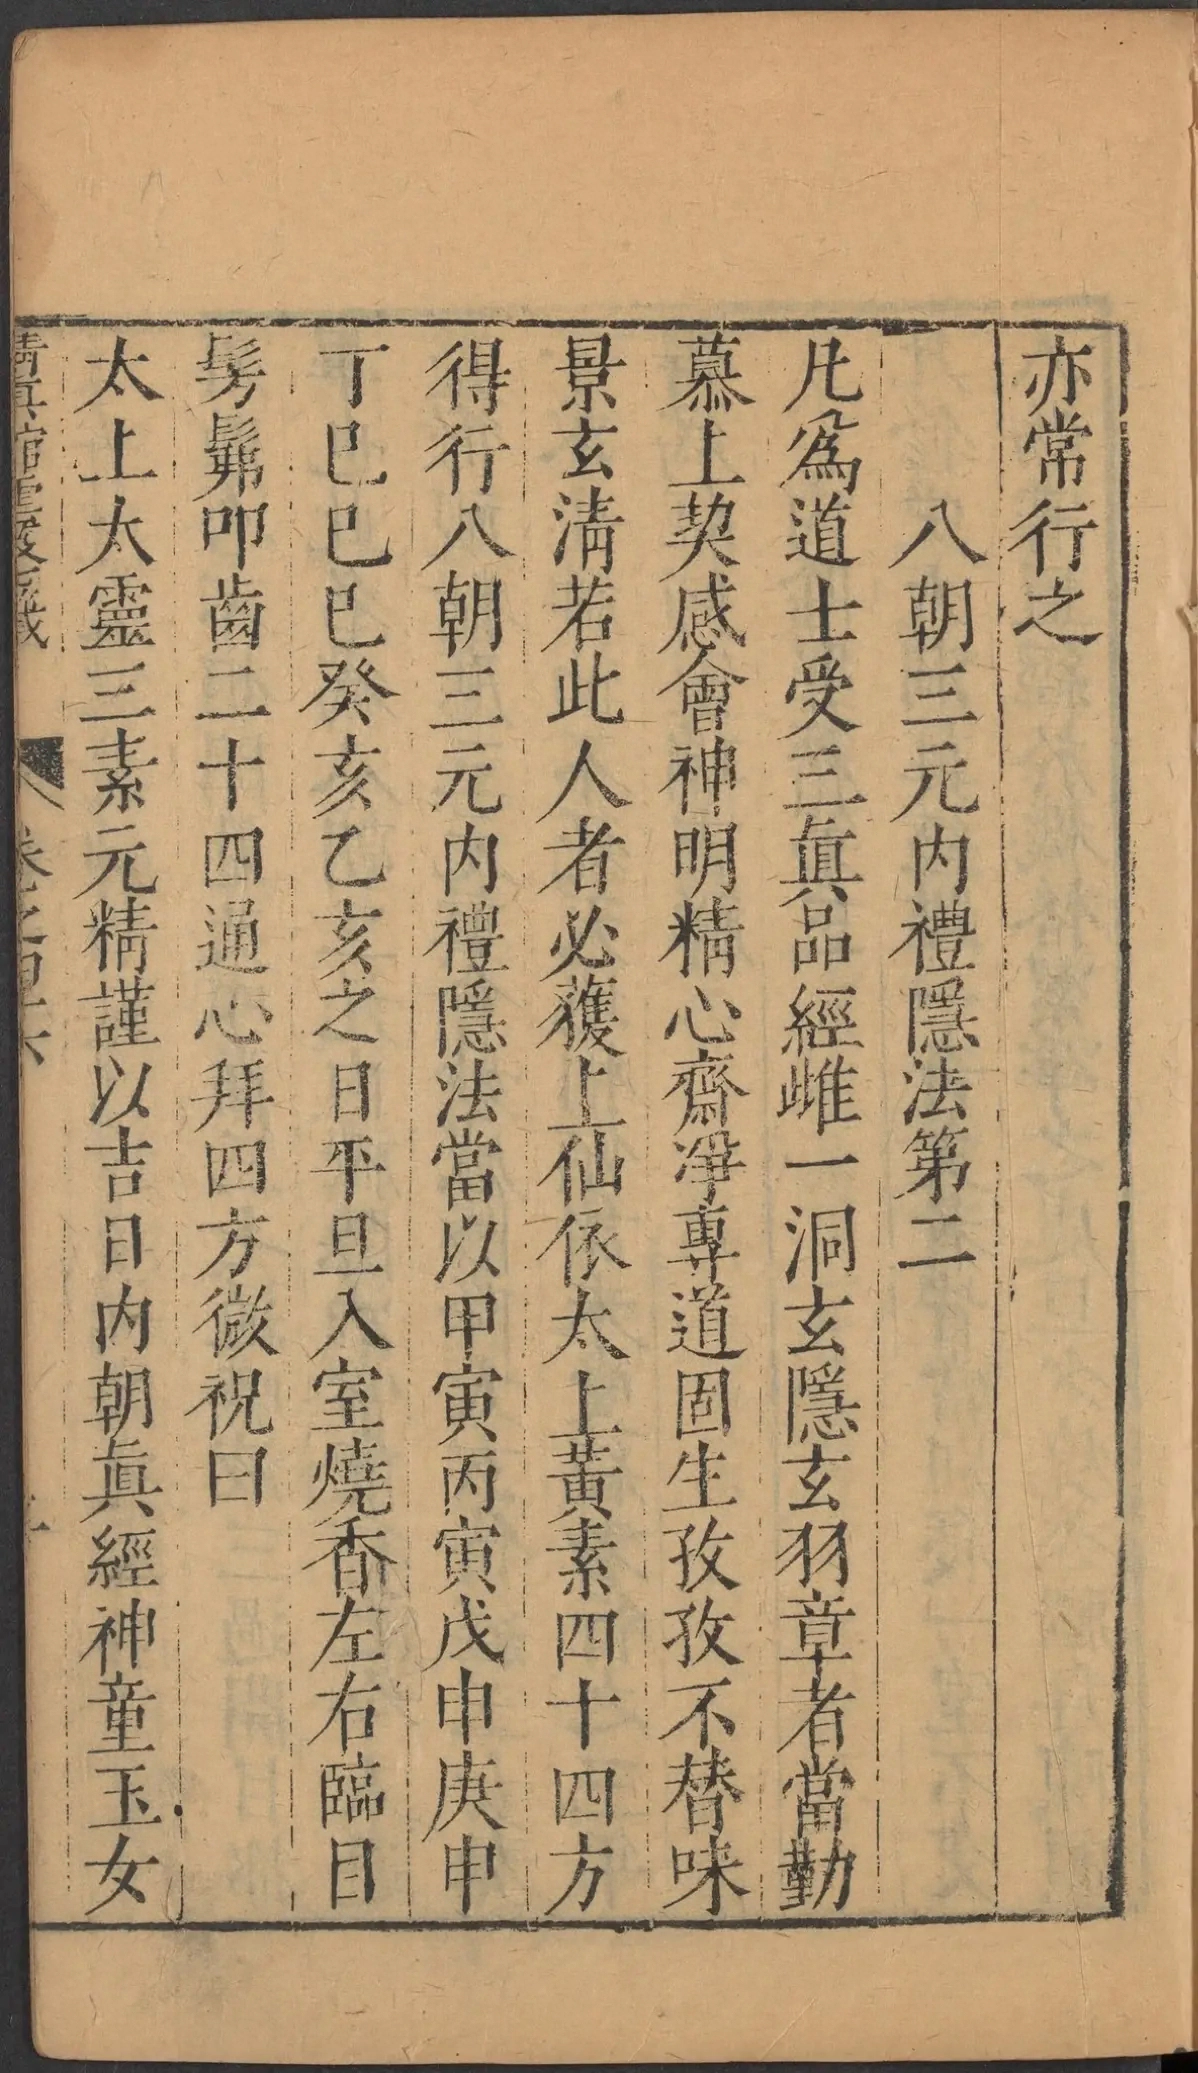 亦常行之
八朝三元内禮隱法第二
凡爲道士受三眞品經雌一洞玄隱玄羽章者當勤
慕上契感會神明精心齋淨專道固生孜孜不替味
景玄清若此人者必獲上仙依太上黃素四十四方
得行八朝三元内禮隱法當以甲寅丙寅戊申庚申
丁巳巳巳癸亥乙亥之日平旦入室燒香左右臨目
髣髴叩齒二十四通心拜四方微祝曰
太上太靈三素元精謹以吉日内朝眞經神童玉女
清真館雲
卷之四六